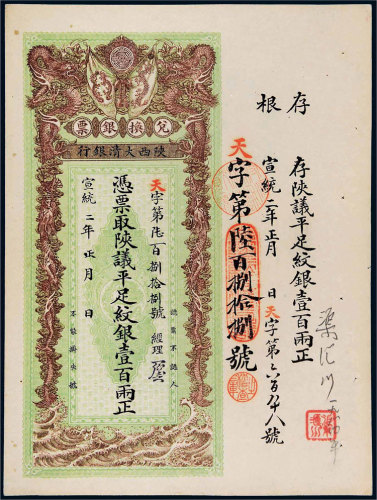 存根
存陝議平足紋銀壹百兩正
宣統二年正月 日天字第六百八十八號
天字第陸百捌拾捌號
兌換銀票
陝西大清銀行
天字第陸百捌拾捌號 經理
憑票取陝議平足紋銀壹百兩正
宣統二年正月 日
認票不認人
不能掛失號